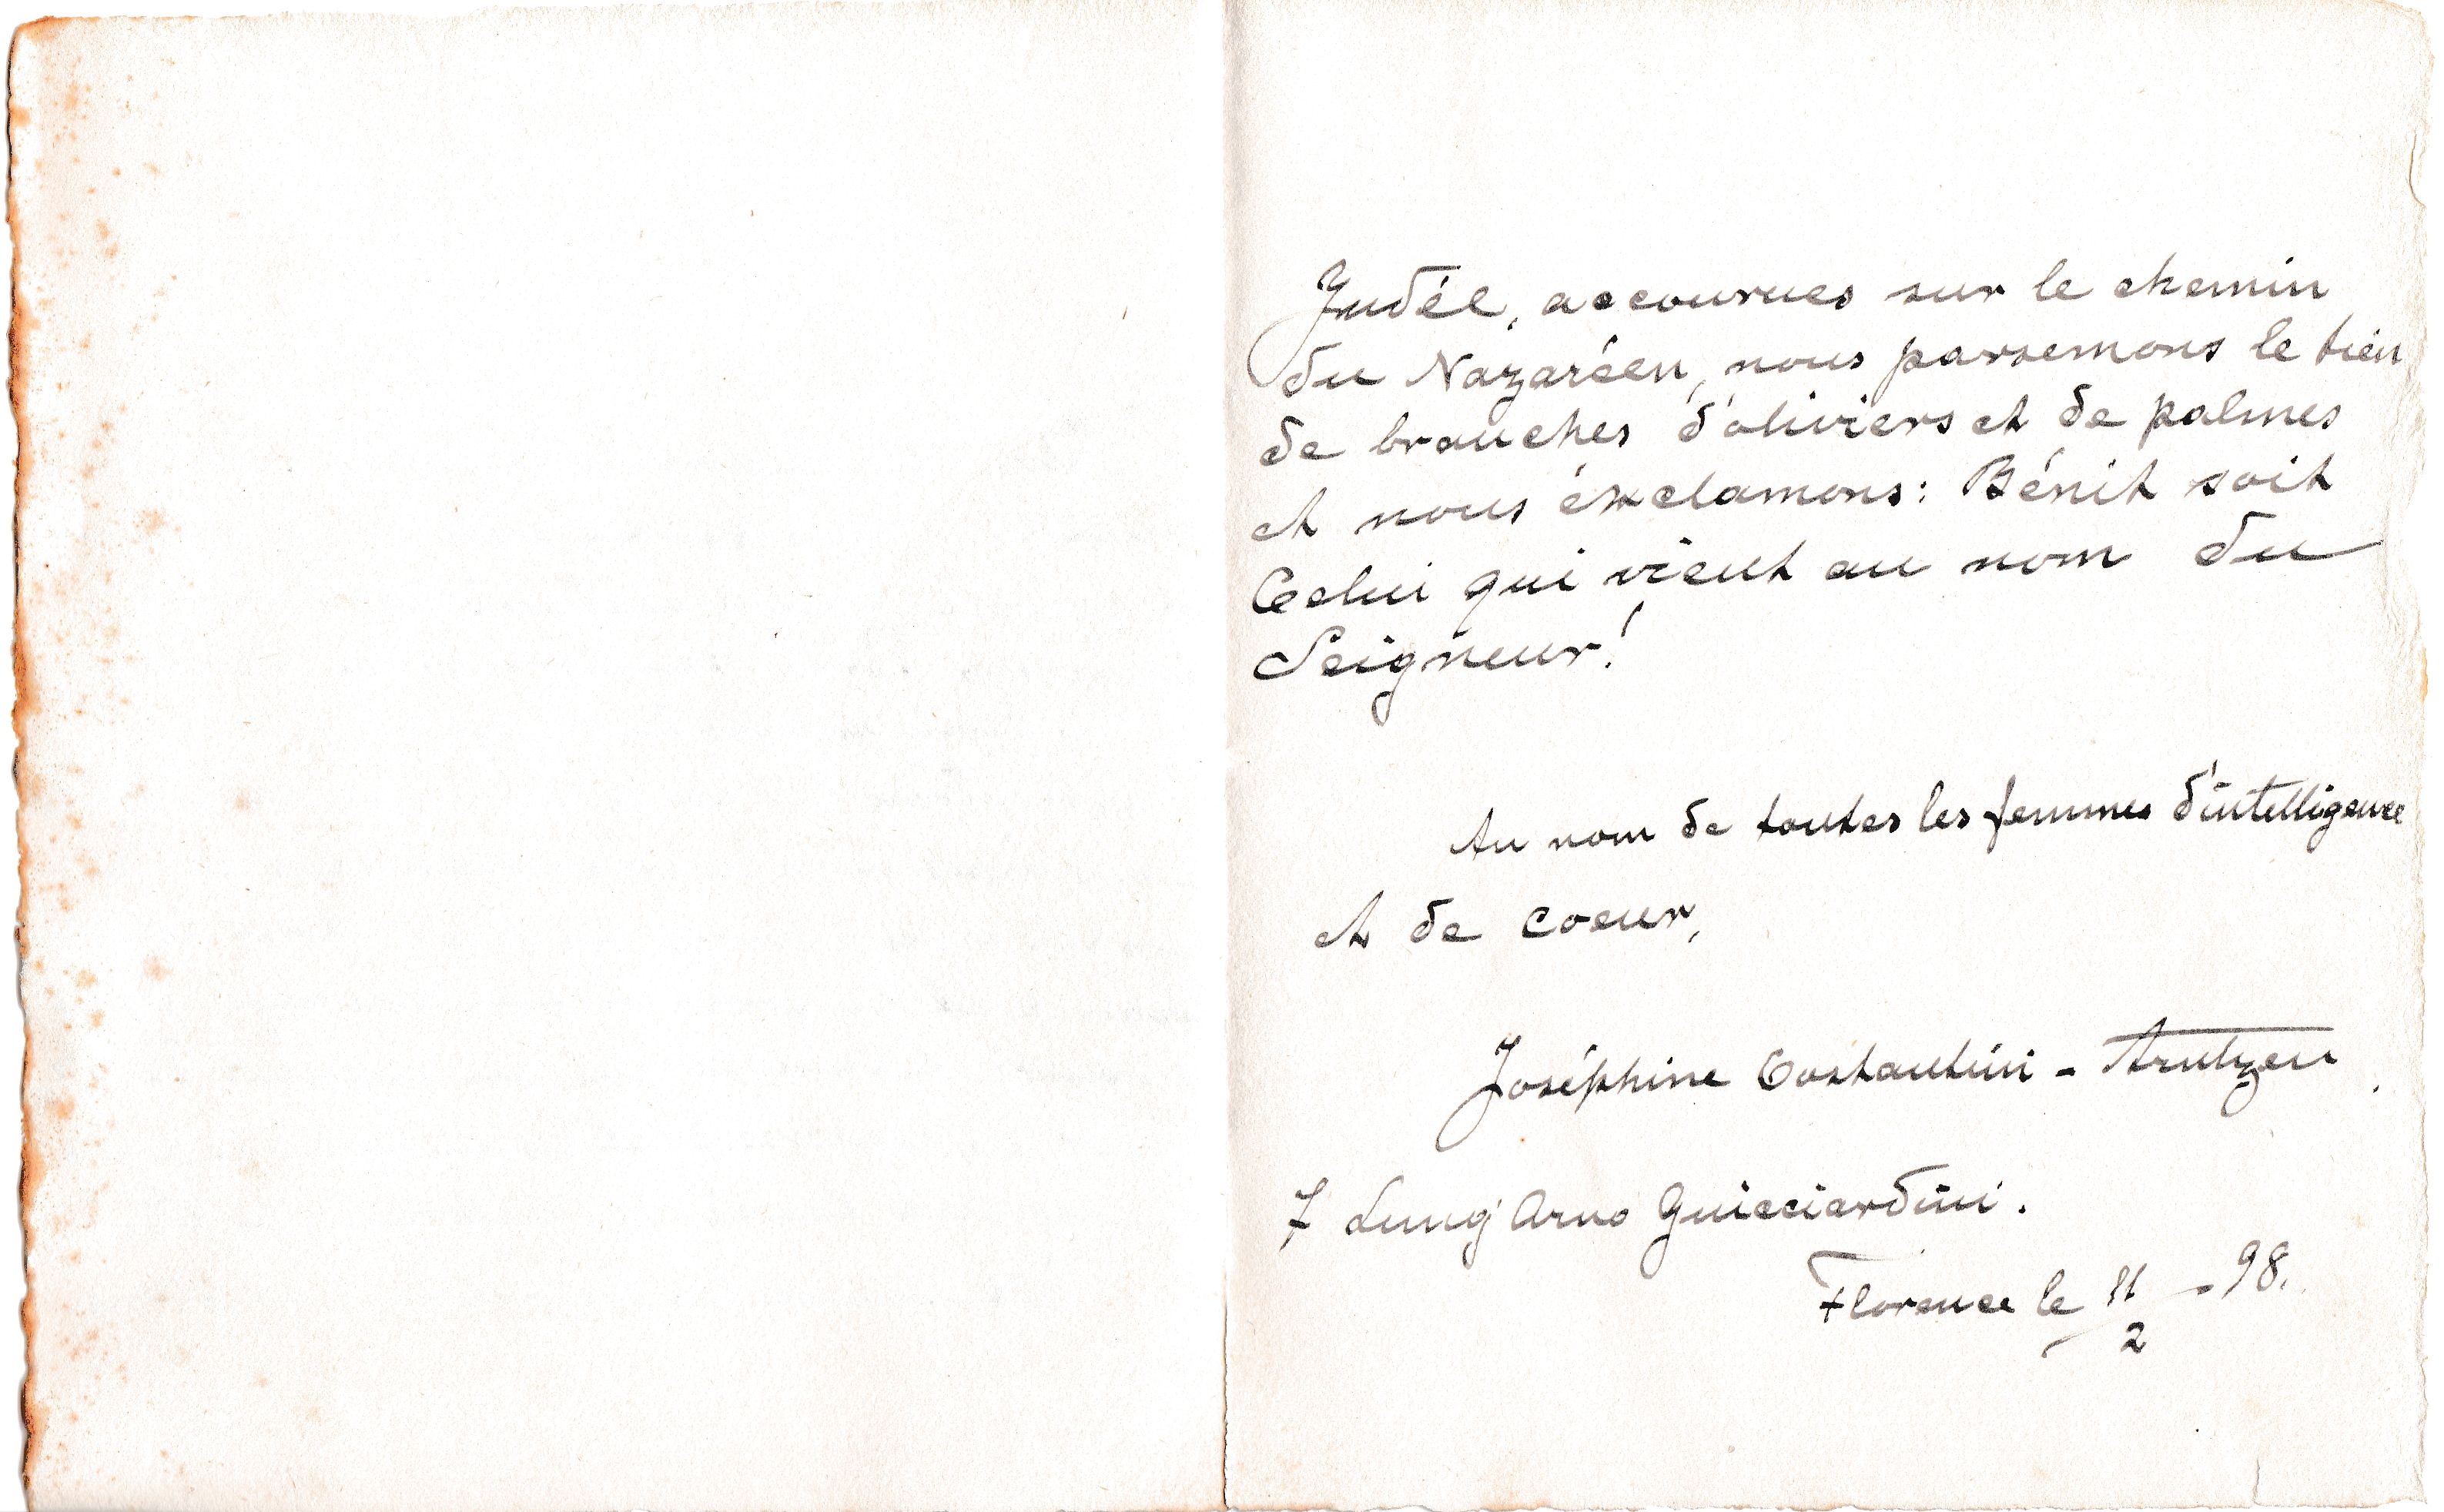 Judée, accourues sur le chemin
du Nazaréen, nous parsemons le tien
de branches d'oliviers et de palmes
et nous éxclamons: Bénit soit
Celui qui vient au nom du
Seigneur!
Au nom de toutes les femmes d'intelligence
et de coeur,
Joséphine Costantini - Arntzen.
7 Lung'Arno Guicciardini.
Florence le 11/2 - 98.